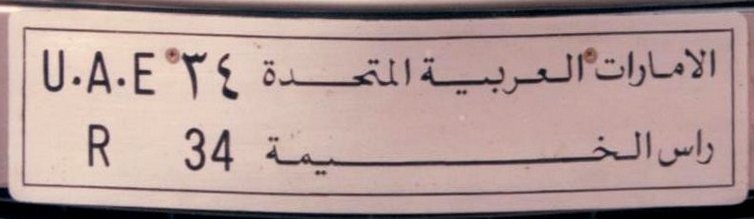 U.A.E ٣٤ الامارات العربية المتحدة
R 34 راس الخيمة